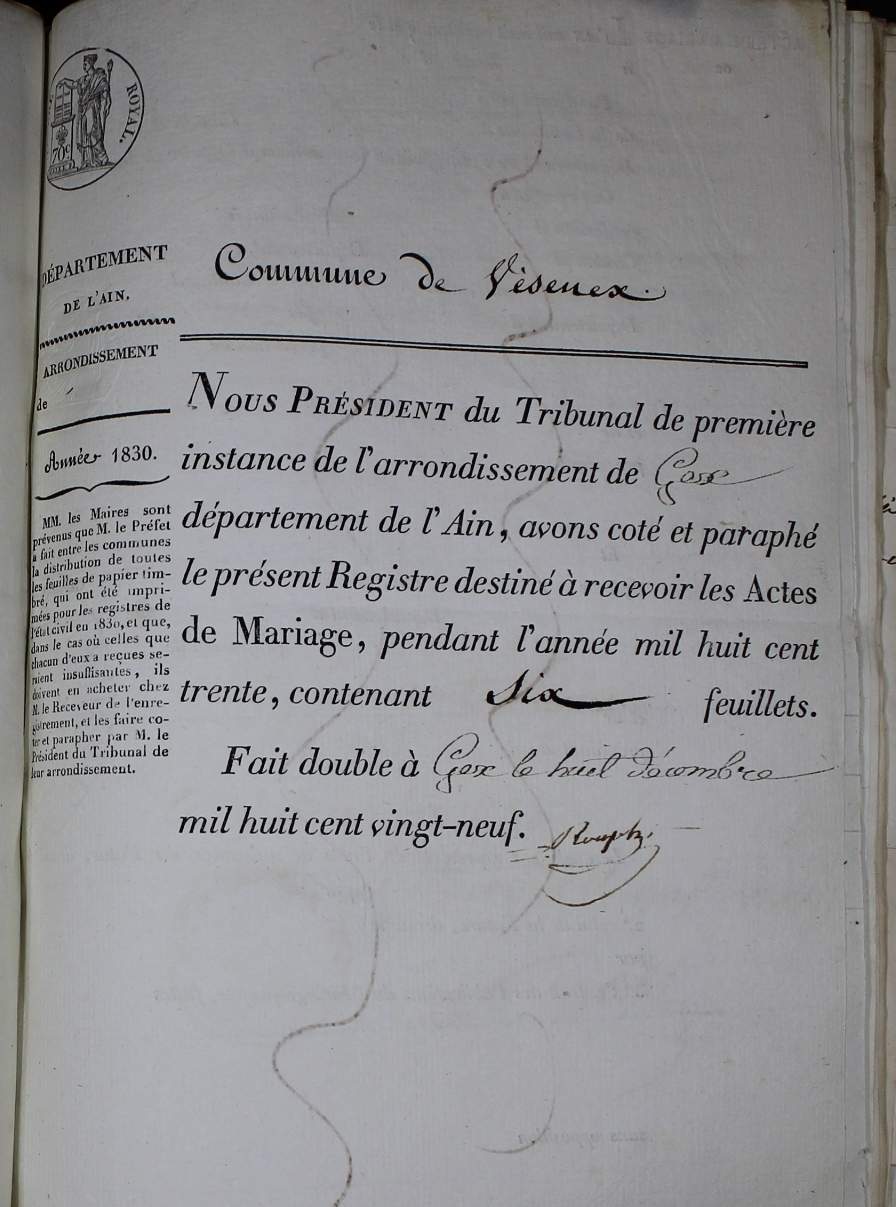 ROYAL.
70c
DÉPARTEMENT
DE L'AIN.
ARRONDISSEMENT
de
Année 1830.
MM. les Maires sont
prévenus que M. le Préfet
a fait entre les communes
la distribution de toutes
les feuilles de papier tim-
bré, qui ont été impri-
mées pour les registres de
l'état civil en 1830, et que,
dans le cas où celles que
chacun d'eux a reçues se-
raient insuffisantes, ils
doivent en acheter chez
M. le Receveur de l'enre-
gistrement, et les faire co-
ter et parapher par M. le
Président du Tribunal de
leur arrondissement.
Commune de Vesenex.
NOUS PRÉSIDENT du Tribunal de première
instance de l'arrondissement de Gex
département de l'Ain, avons coté et paraphé
le présent Registre destiné à recevoir les Actes
de Mariage, pendant l'année mil huit cent
trente, contenant Six feuillets.
Fait double à Gex le huit décembre
mil huit cent vingt-neuf.